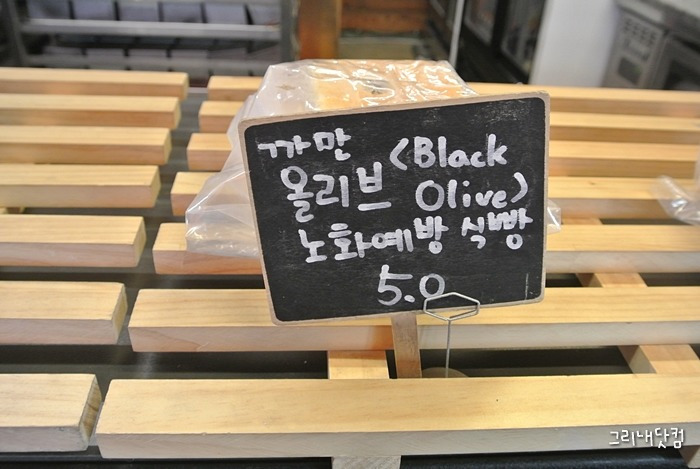 까만
올리브 <Black Olive>
노화예방 식빵
5.0
그리내닷컴